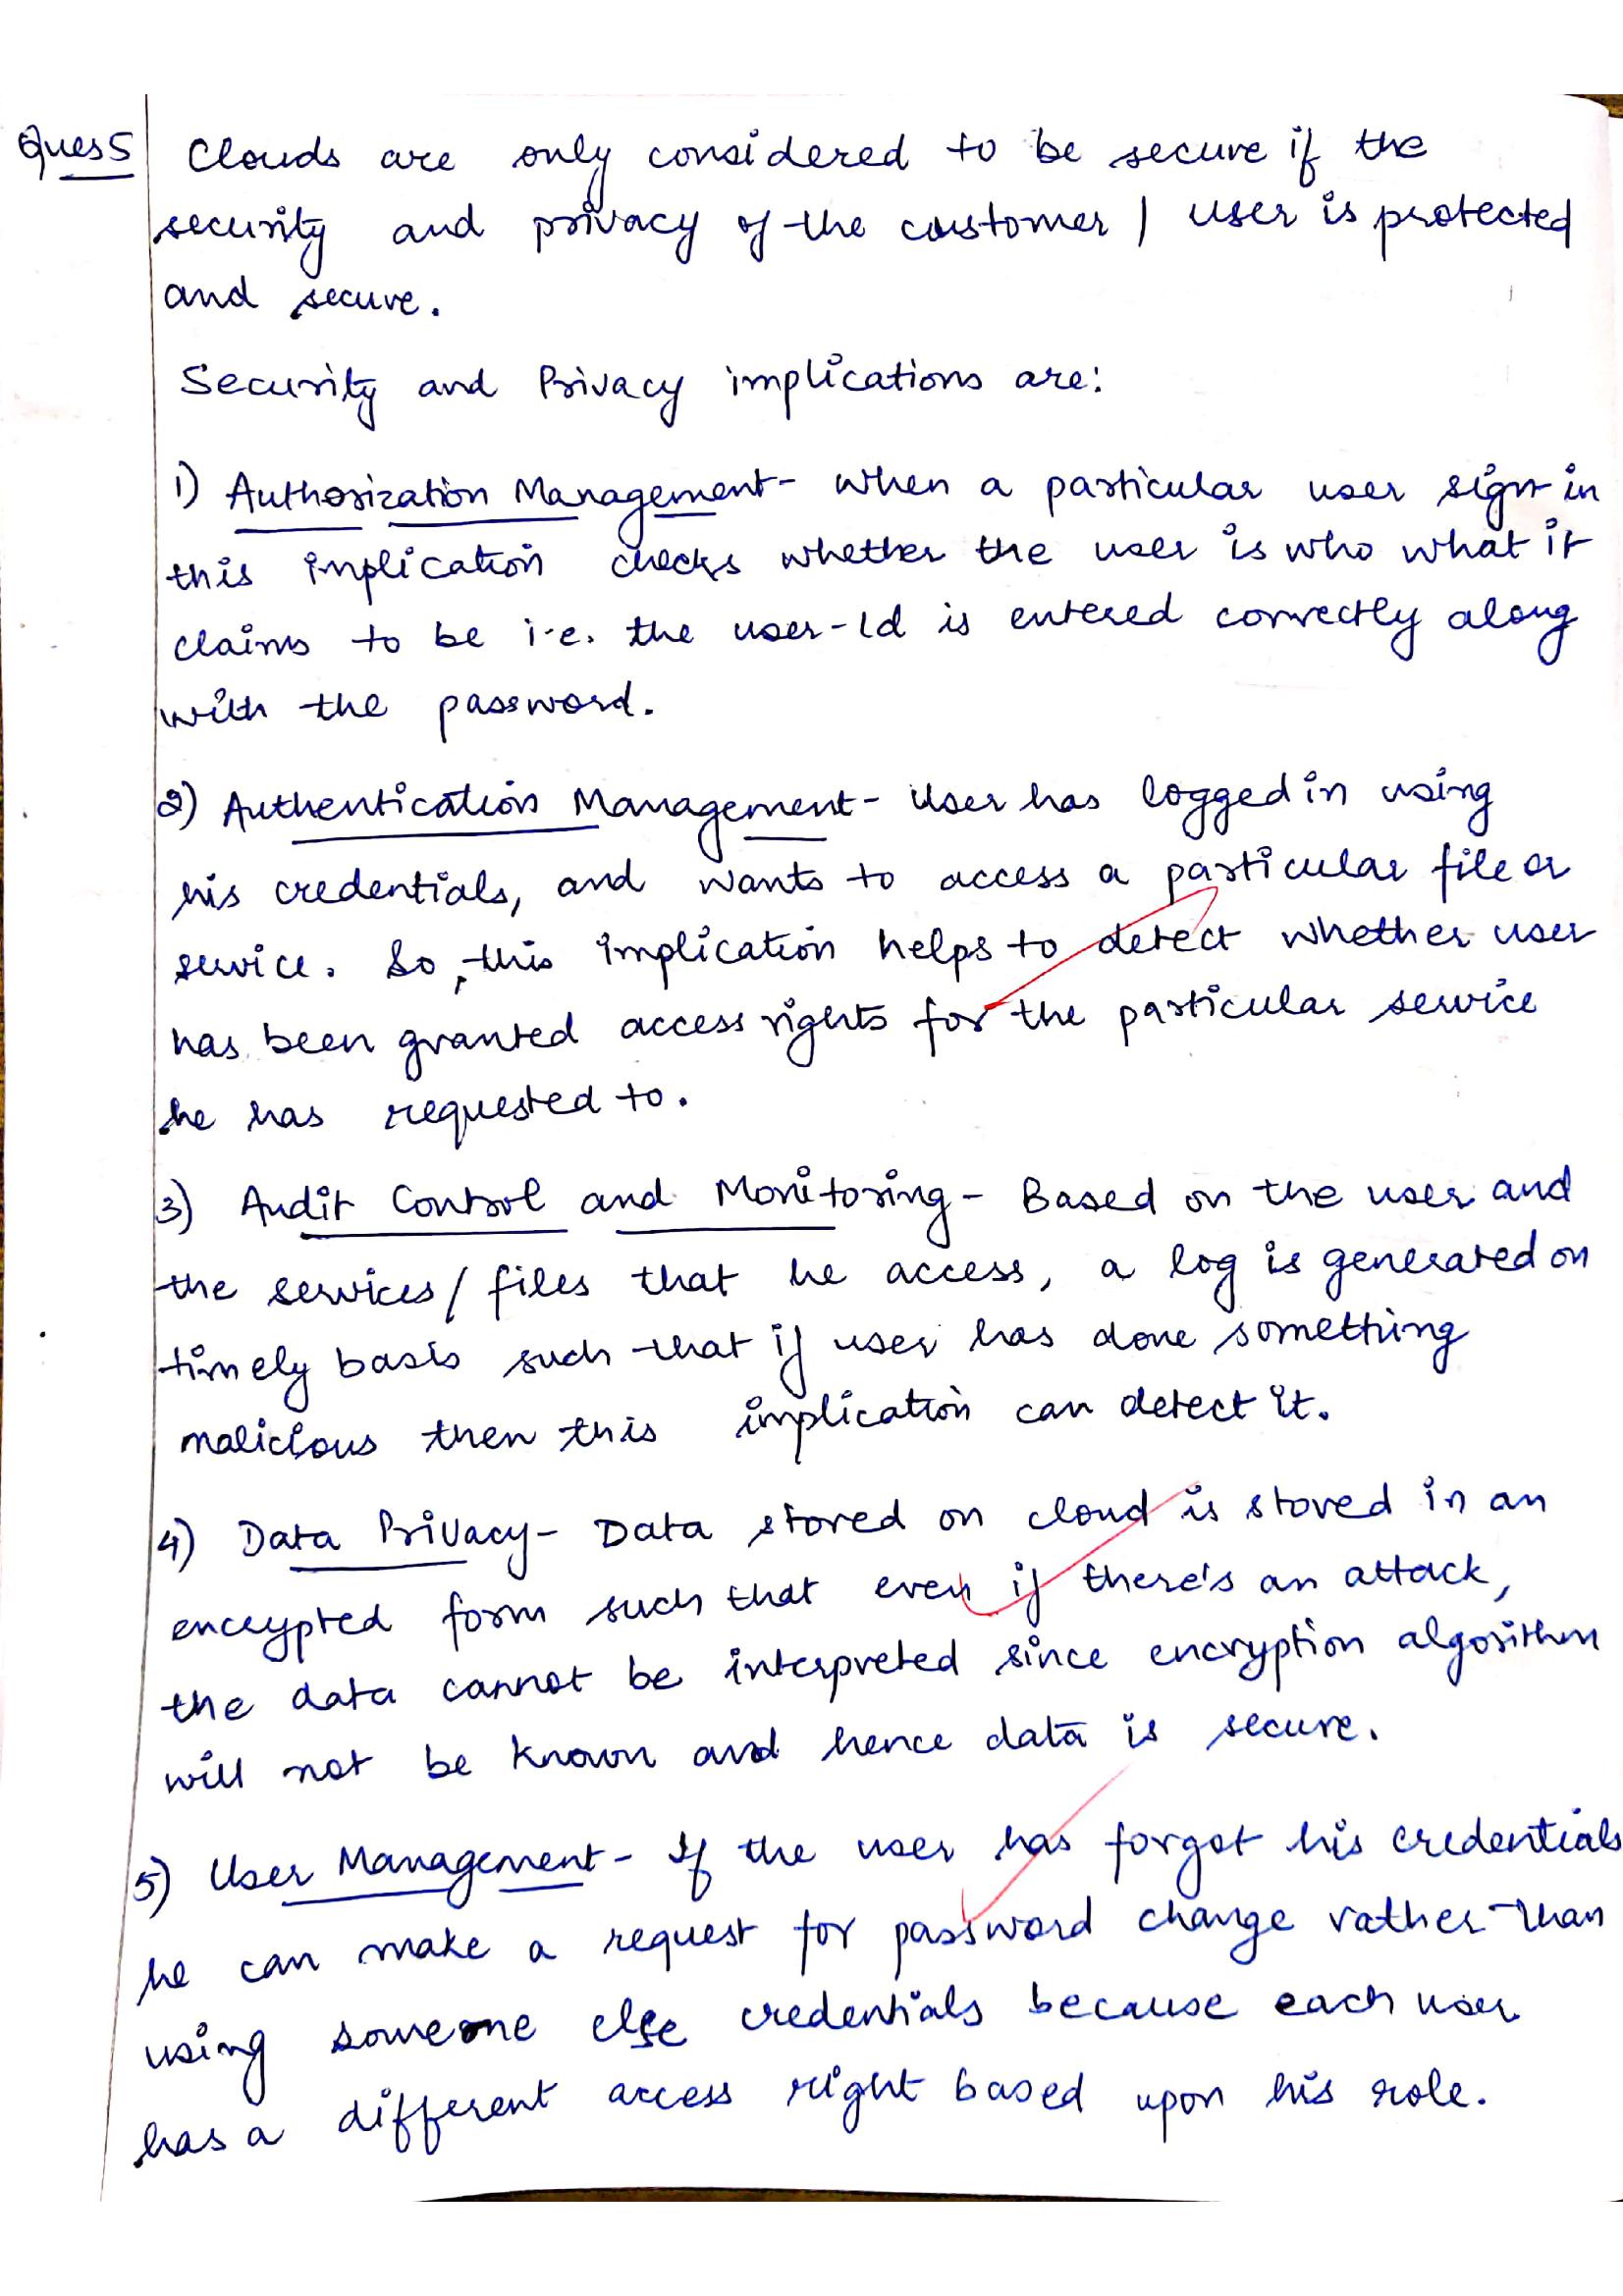 Ques5 Clouds are only considered to be secure if the
security and privacy of the customer / user is protected
and secure.
Security and Privacy implications are:
1) Authorization Management- When a particular user sign in
this implication checks whether the user is who what it
claims to be i.e. the user-Id is entered correctly along
with the password.
2) Authentication Management- User has logged in using
his credentials, and wants to access a particular file or
service. So, this implication helps to detect whether user
has been granted access rights for the particular service
he has requested to.
3) Audit Control and Monitoring - Based on the user and
the services/files that he access, a log is generated on
timely basis such that if user has done something
malicious then this implication can detect it.
4) Data Privacy- Data stored on cloud is stored in an
encrypted form such that even if there's an attack,
the data cannot be interpreted since encryption algorithm
will not be known and hence data is secure.
5) User Management- If the user has forgot his credentials
he can make a request for password change rather than
using someone else credentials because each user
has a different access right based upon his role.